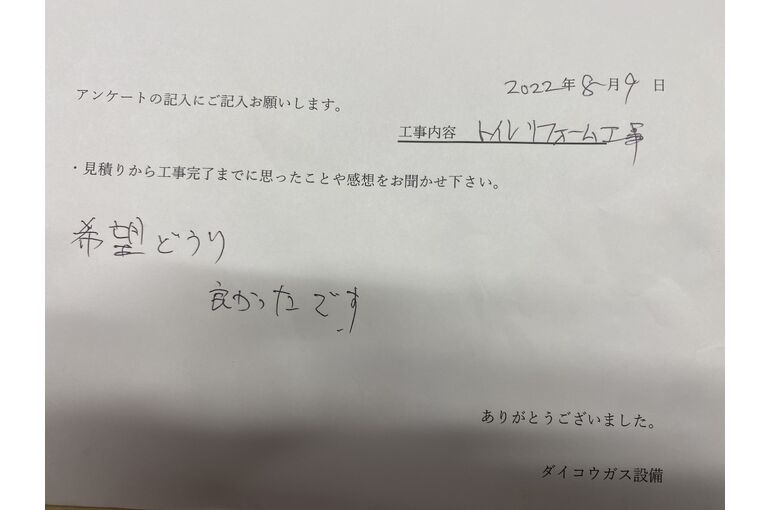 2022年8月9日
アンケートの記入にご記入お願いします。
工事内容 トイレリフォーム工事
・見積りから工事完了までに思ったことや感想をお聞かせ下さい。
希望どうり
良かったです
ありがとうございました。
ダイコウガス設備